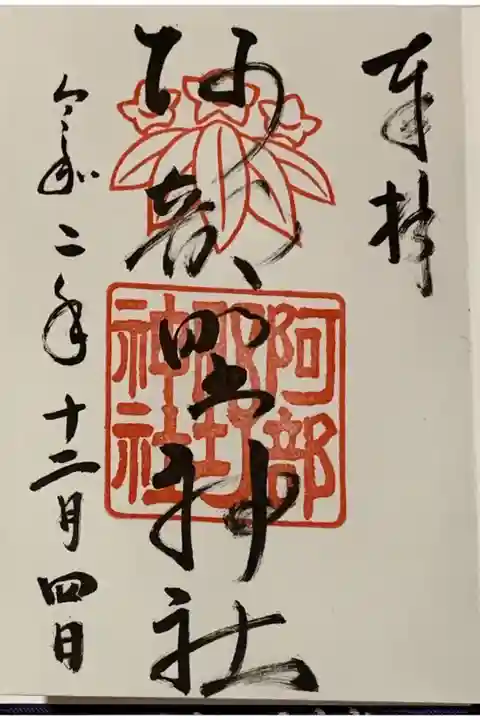 奉拝
阿部野神社
阿部
野
神社
令和二年十二月四日